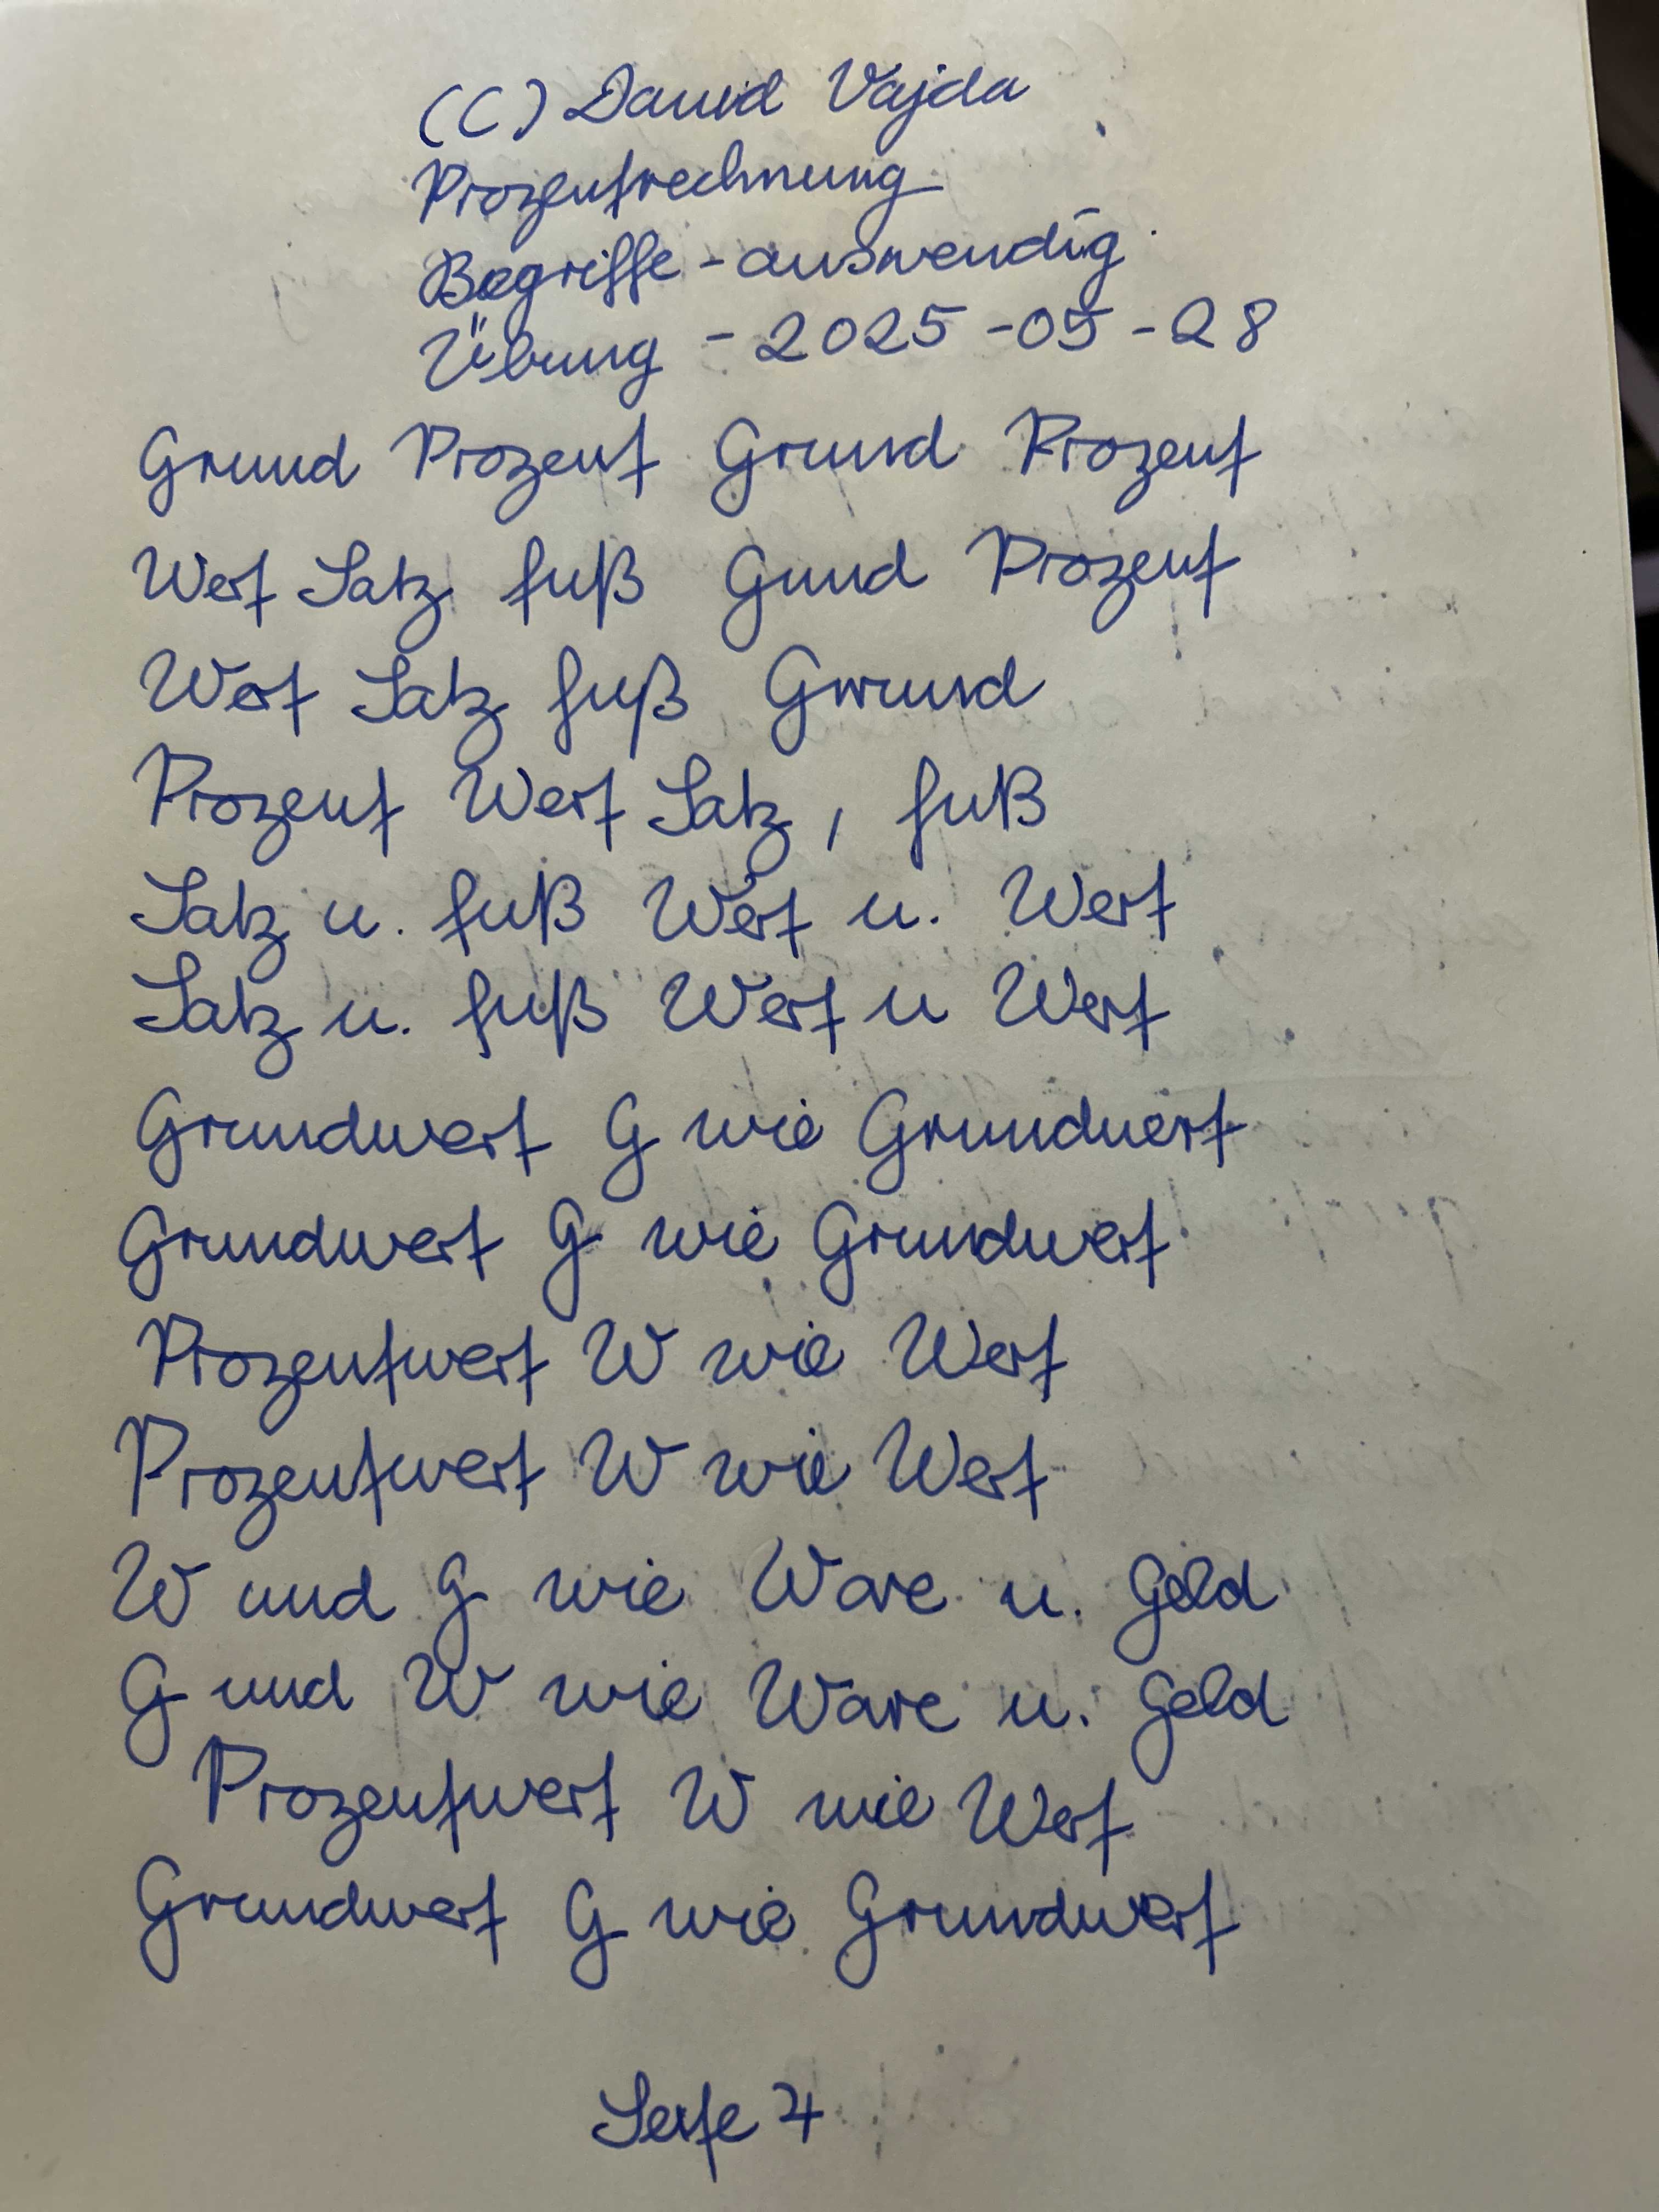 (C) David Vajda
Prozentrechnung
Begriffe - auswendig
Übung - 2025-05-28
Grund Prozent Grund Prozent
Wert Satz fuß Gund Prozent
Wert Satz fuß Grund
Prozent Wert Satz, fuß
Satz u. fuß Wert u. Wert
Satz u. fuß Wert u Wert
Grundwert G wie Grundwert
Grundwert G wie Grundwert
Prozentwert W wie Wert
Prozentwert W wie Wert
W und G wie Ware u. Geld
G und W wie Ware u. Geld
Prozentwert W wie Wert
Grundwert G wie Grundwert
Seite 4